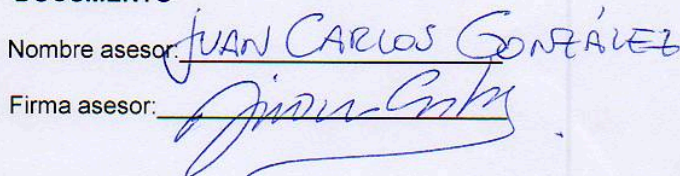 DOCUMENTO
Nombre asesor: JUAN CARLOS GONZÁLEZ
Firma asesor: